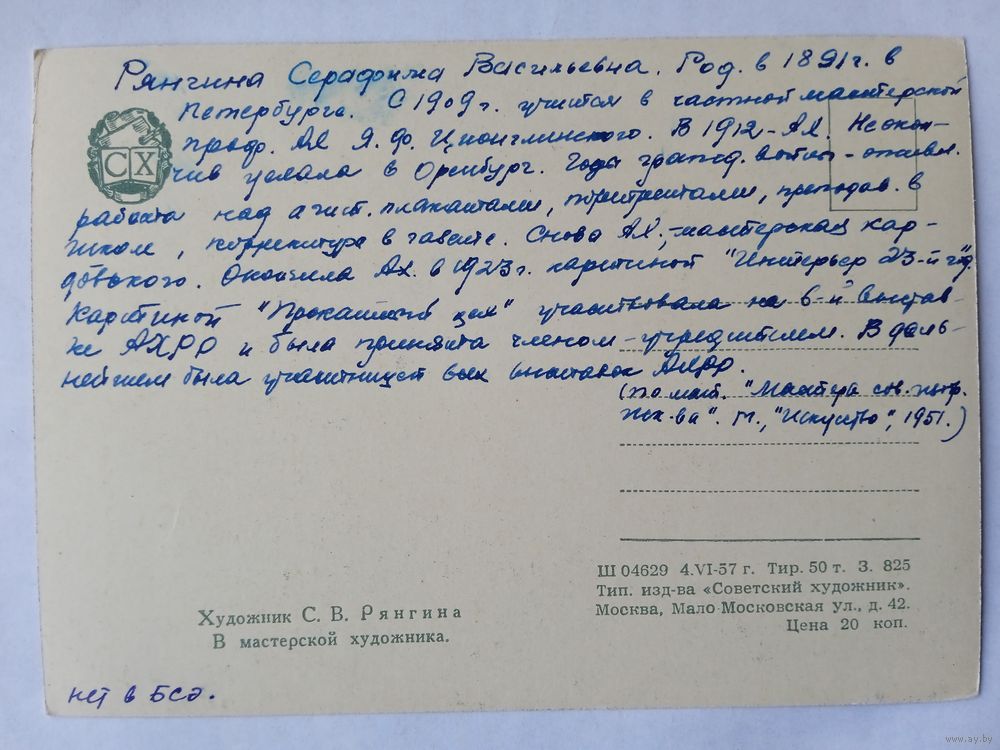 Рянгина Серафима Васильевна. Род. в 1891 г. в
Петербурге. С 1909 г. учится в частной мастерской
проф. АХ Я. Ф. Ционглинского. В 1912 - АХ. Не окон-
чив уехала в Оренбург. Годы гражд. войны -
СХ
работа над агит. плакатами, портретами, преподав. в
школе, корректура в газете. Снова АХ, мастерская Кар-
довского. Окончила АХ. в 1923 г. картиной "Интерьер 23-й год.
Картиной "Прокатный цех" участвовала на 6-й выстав-
ке АХРР и была принята членом-учредителем. В даль-
нейшем была участницей всех выставок АХРР.
(по мат. "Мастера сов. изобр.
иск-ва". М., "Искусство", 1951.)
Ш 04629 4.VI-57 г. Тир. 50 т. З. 825
Тип. изд-ва «Советский художник».
Москва, Мало-Московская ул., д. 42.
Цена 20 коп.
Художник С. В. Рянгина
В мастерской художника.
нет в БСЭ.
www.ay.by